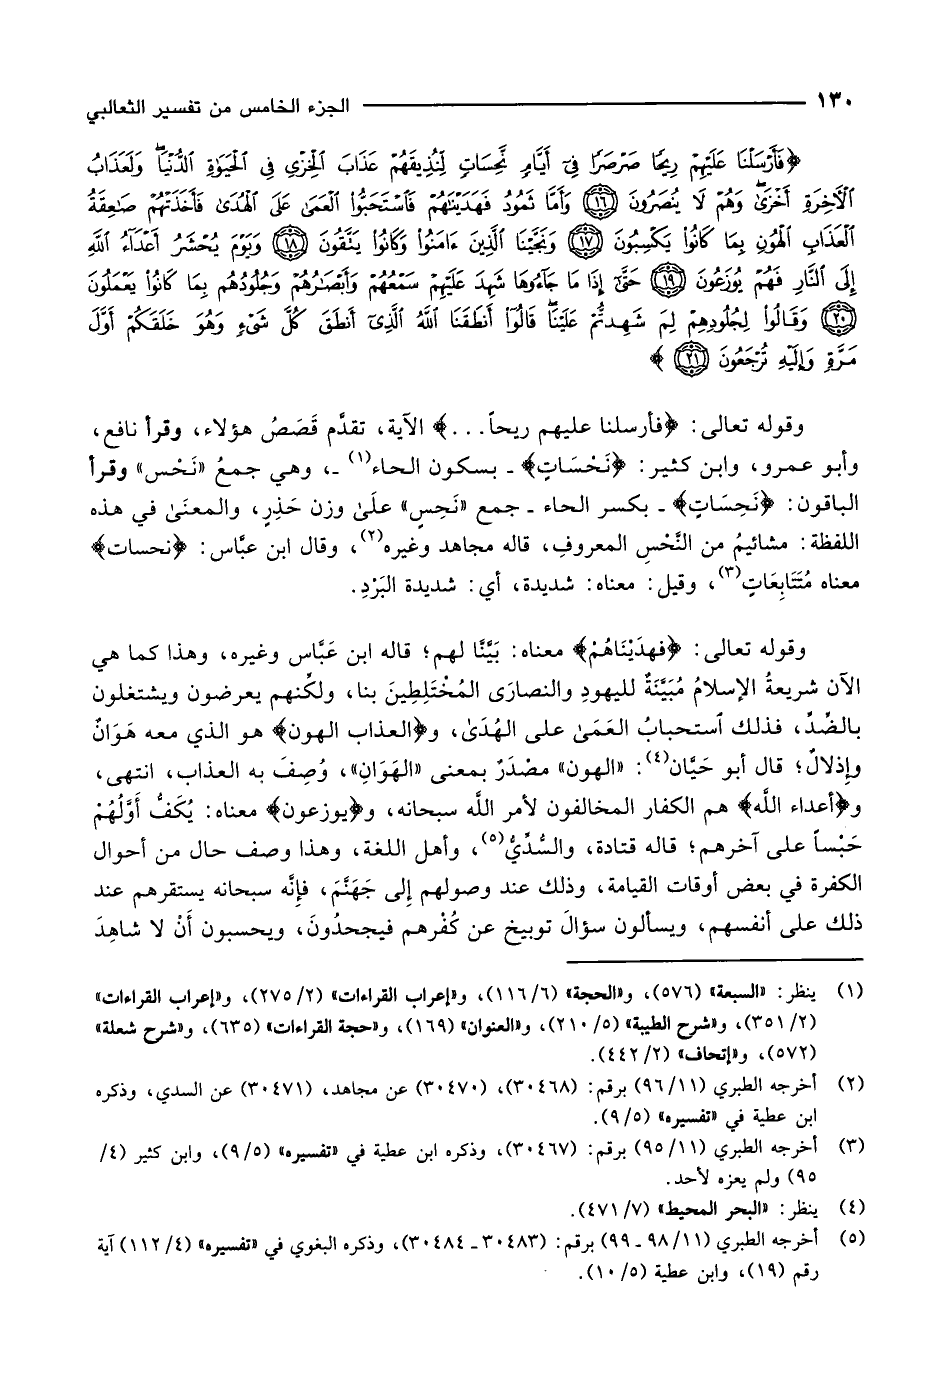 ١٣٠ الجزء الخامس من تفسير الثعالبي
﴿فَأَرْسَلْنَا عَلَيْهِمْ رِيحًا صَرْصَرًا فِىٓ أَيَّامٍ نَّحِسَاتٍ لِّنُذِيقَهُمْ عَذَابَ الْخِزْىِ فِى الْحَيَوٰةِ الدُّنْيَا ۖ وَلَعَذَابُ
الْءَاخِرَةِ أَخْزَىٰ ۖ وَهُمْ لَا يُنصَرُونَ ﴿١٦﴾ وَأَمَّا ثَمُودُ فَهَدَيْنَٰهُمْ فَاسْتَحَبُّوا۟ الْعَمَىٰ عَلَى الْهُدَىٰ فَأَخَذَتْهُمْ صَٰعِقَةُ
الْعَذَابِ الْهُونِ بِمَا كَانُوا۟ يَكْسِبُونَ ﴿١٧﴾ وَنَجَّيْنَا الَّذِينَ ءَامَنُوا۟ وَكَانُوا۟ يَتَّقُونَ ﴿١٨﴾ وَيَوْمَ يُحْشَرُ أَعْدَآءُ اللَّهِ
إِلَى النَّارِ فَهُمْ يُوزَعُونَ ﴿١٩﴾ حَتَّىٰٓ إِذَا مَا جَآءُوهَا شَهِدَ عَلَيْهِمْ سَمْعُهُمْ وَأَبْصَٰرُهُمْ وَجُلُودُهُم بِمَا كَانُوا۟ يَعْمَلُونَ
﴿٢٠﴾ وَقَالُوا۟ لِجُلُودِهِمْ لِمَ شَهِدتُّمْ عَلَيْنَا ۖ قَالُوٓا۟ أَنطَقَنَا اللَّهُ الَّذِىٓ أَنطَقَ كُلَّ شَىْءٍ وَهُوَ خَلَقَكُمْ أَوَّلَ
مَرَّةٍ وَإِلَيْهِ تُرْجَعُونَ ﴿٢١﴾﴾
وقوله تعالى: ﴿فأرسلنا عليهم ريحاً...﴾ الآية، تقدَّم قَصَصُ هؤلاء، وقرأ نافع،
وأبو عمرو، وابن كثير: ﴿نَحْسَاتٍ﴾ ـ بسكون الحاء(١) ـ، وهي جمعُ «نَحْس» وقرأ
الباقون: ﴿نَحِسَاتٍ﴾ ـ بكسر الحاء ـ جمع «نَحِسٍ» علَىٰ وزن حَذِرٍ، والمعنَىٰ في هذه
اللفظة: مشائيمُ من النَّحْسِ المعروفِ، قاله مجاهد وغيره(٢)، وقال ابن عبَّاس: ﴿نحسات﴾
معناه مُتَتَابِعَاتٍ(٣)، وقيل: معناه: شديدة، أي: شديدة البَرْدِ.
وقوله تعالى: ﴿فهدَيْنَاهُمْ﴾ معناه: بَيَّنَّا لهم؛ قاله ابن عَبَّاس وغيره، وهذا كما هي
الآن شريعةُ الإسلامُ مُبَيَّنَةٌ لليهودِ والنصارَى المُخْتَلِطِينَ بنا، ولكنهم يعرضون ويشتغلون
بالضِّدِّ، فذلك ٱستحبابُ العَمَىٰ على الهُدَىٰ، و﴿العذاب الهون﴾ هو الذي معه هَوَانٌ
وإِذلالٌ؛ قال أبو حَيَّان(٤): «الهون» مصْدَرٌ بمعنى «الهَوَانِ»، وُصِفَ به العذاب، انتهى،
و﴿أعداء اللَّه﴾ هم الكفار المخالفون لأمر اللَّه سبحانه، و﴿يوزعون﴾ معناه: يُكَفُّ أَوَّلُهُمْ
حَبْساً على آخرهم؛ قاله قتادة، والسُّدِّيُّ(٥)، وأهل اللغة، وهذا وصف حال من أحوال
الكفرة في بعض أوقات القيامة، وذلك عند وصولهم إلى جَهَنَّمَ، فإنَّه سبحانه يستقرهم عند
ذلك على أنفسهم، ويسألون سؤالَ توبيخ عن كُفْرهم فيجحدُونَ، ويحسبون أَنْ لا شاهِدَ
(١) ينظر: «السبعة» (٥٧٦)، و«الحجة» (٦/ ١١٦)، و«إعراب القراءات» (٢/ ٢٧٥)، و«إعراب القراءات»
(٢/ ٣٥١)، و«شرح الطيبة» (٥/ ٢١٠)، و«العنوان» (١٦٩)، و«حجة القراءات» (٦٣٥)، و«شرح شعلة»
(٥٧٢)، و«إتحاف» (٢/ ٤٤٢).
(٢) أخرجه الطبري (١١/ ٩٦) برقم: (٣٠٤٦٨)، (٣٠٤٧٠) عن مجاهد، (٣٠٤٧١) عن السدي، وذكره
ابن عطية في «تفسيره» (٥/ ٩).
(٣) أخرجه الطبري (١١/ ٩٥) برقم: (٣٠٤٦٧)، وذكره ابن عطية في «تفسيره» (٥/ ٩)، وابن كثير (٤/
٩٥) ولم يعزه لأحد.
(٤) ينظر: «البحر المحيط» (٧/ ٤٧١).
(٥) أخرجه الطبري (١١/ ٩٨ ـ ٩٩) برقم: (٣٠٤٨٣ ـ ٣٠٤٨٤)، وذكره البغوي في «تفسيره» (٤/ ١١٢) آية
رقم (١٩)، وابن عطية (٥/ ١٠).